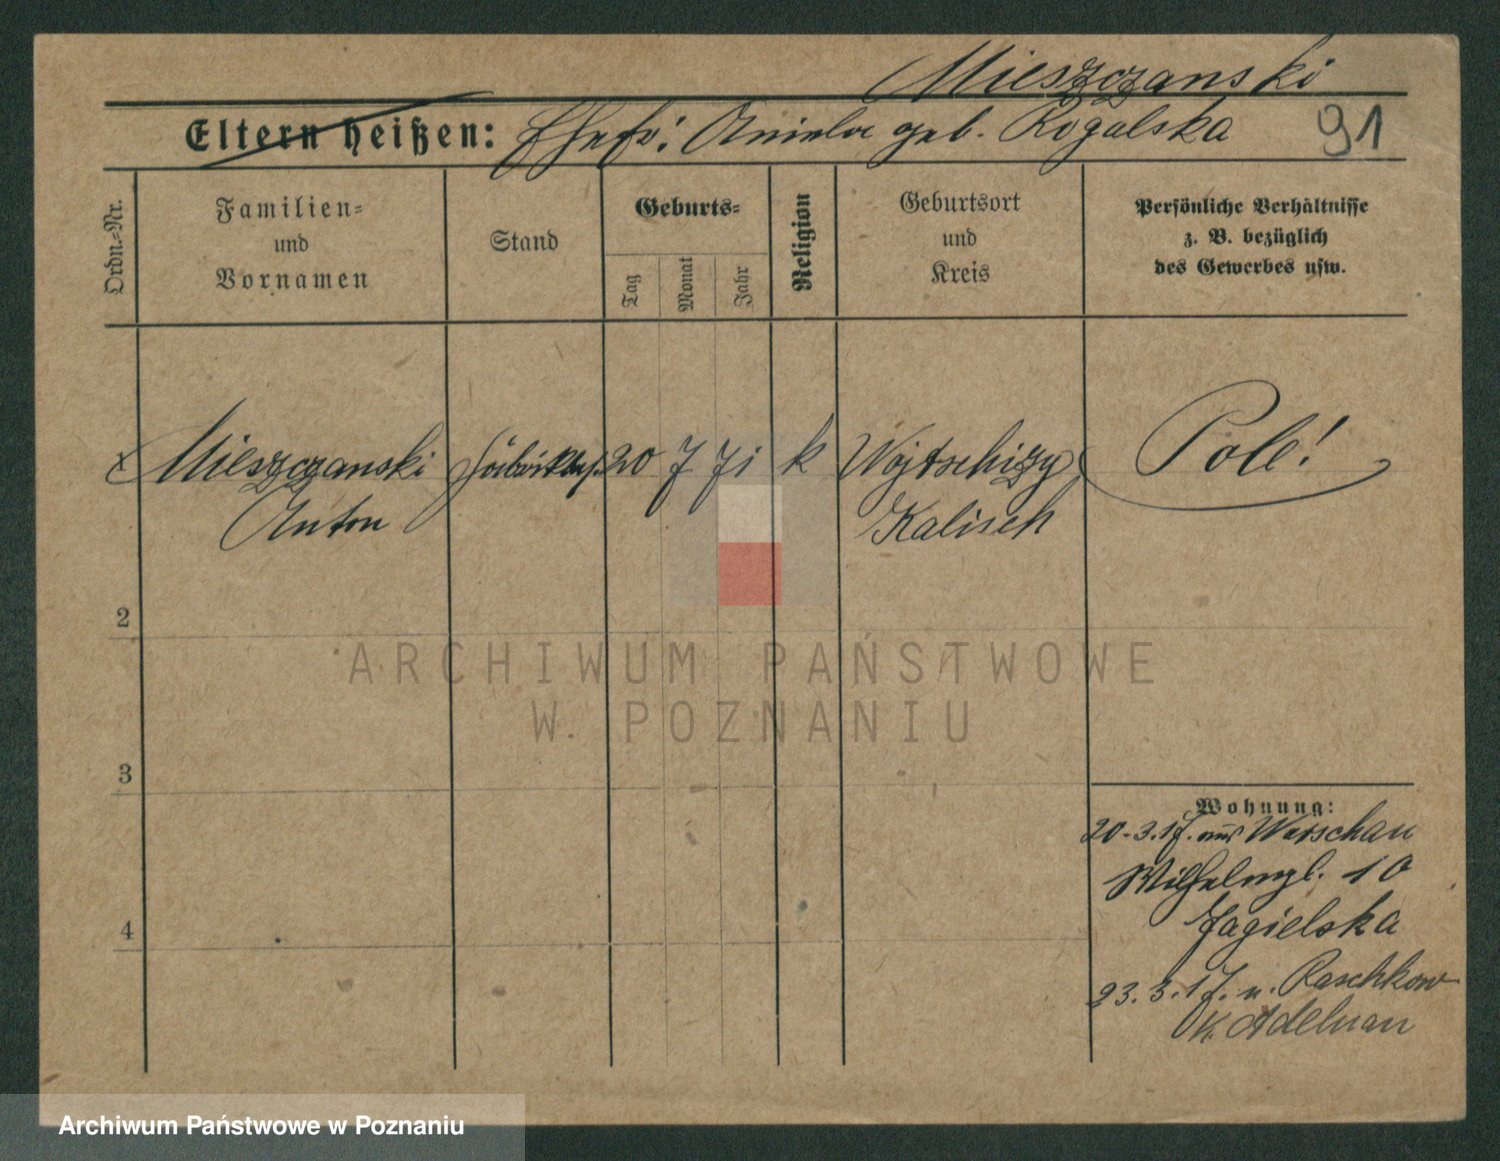 Mieszczanski
Eltern heißen: Ehefr: Aniela geb. Rogalska
91
Ordn.-Nr.
Familien-
und
Vornamen
Stand
Geburts-
Tag
Monat
Jahr
Religion
Geburtsort
und
Kreis
Persönliche Verhältnisse
z. B. bezüglich
des Gewerbes usw.
1 Mieszczanski 20 7 71 k Wojtschizy Pole!
Anton Kalisch
2
3
4
Wohnung:
20.3.17. aus Warschau
Wilhelmpl. 10
Jagielska
23.3.17. n. Raschkow
K. Adelnau
ARCHIWUM PAŃSTWOWE
W POZNANIU
Archiwum Państwowe w Poznaniu